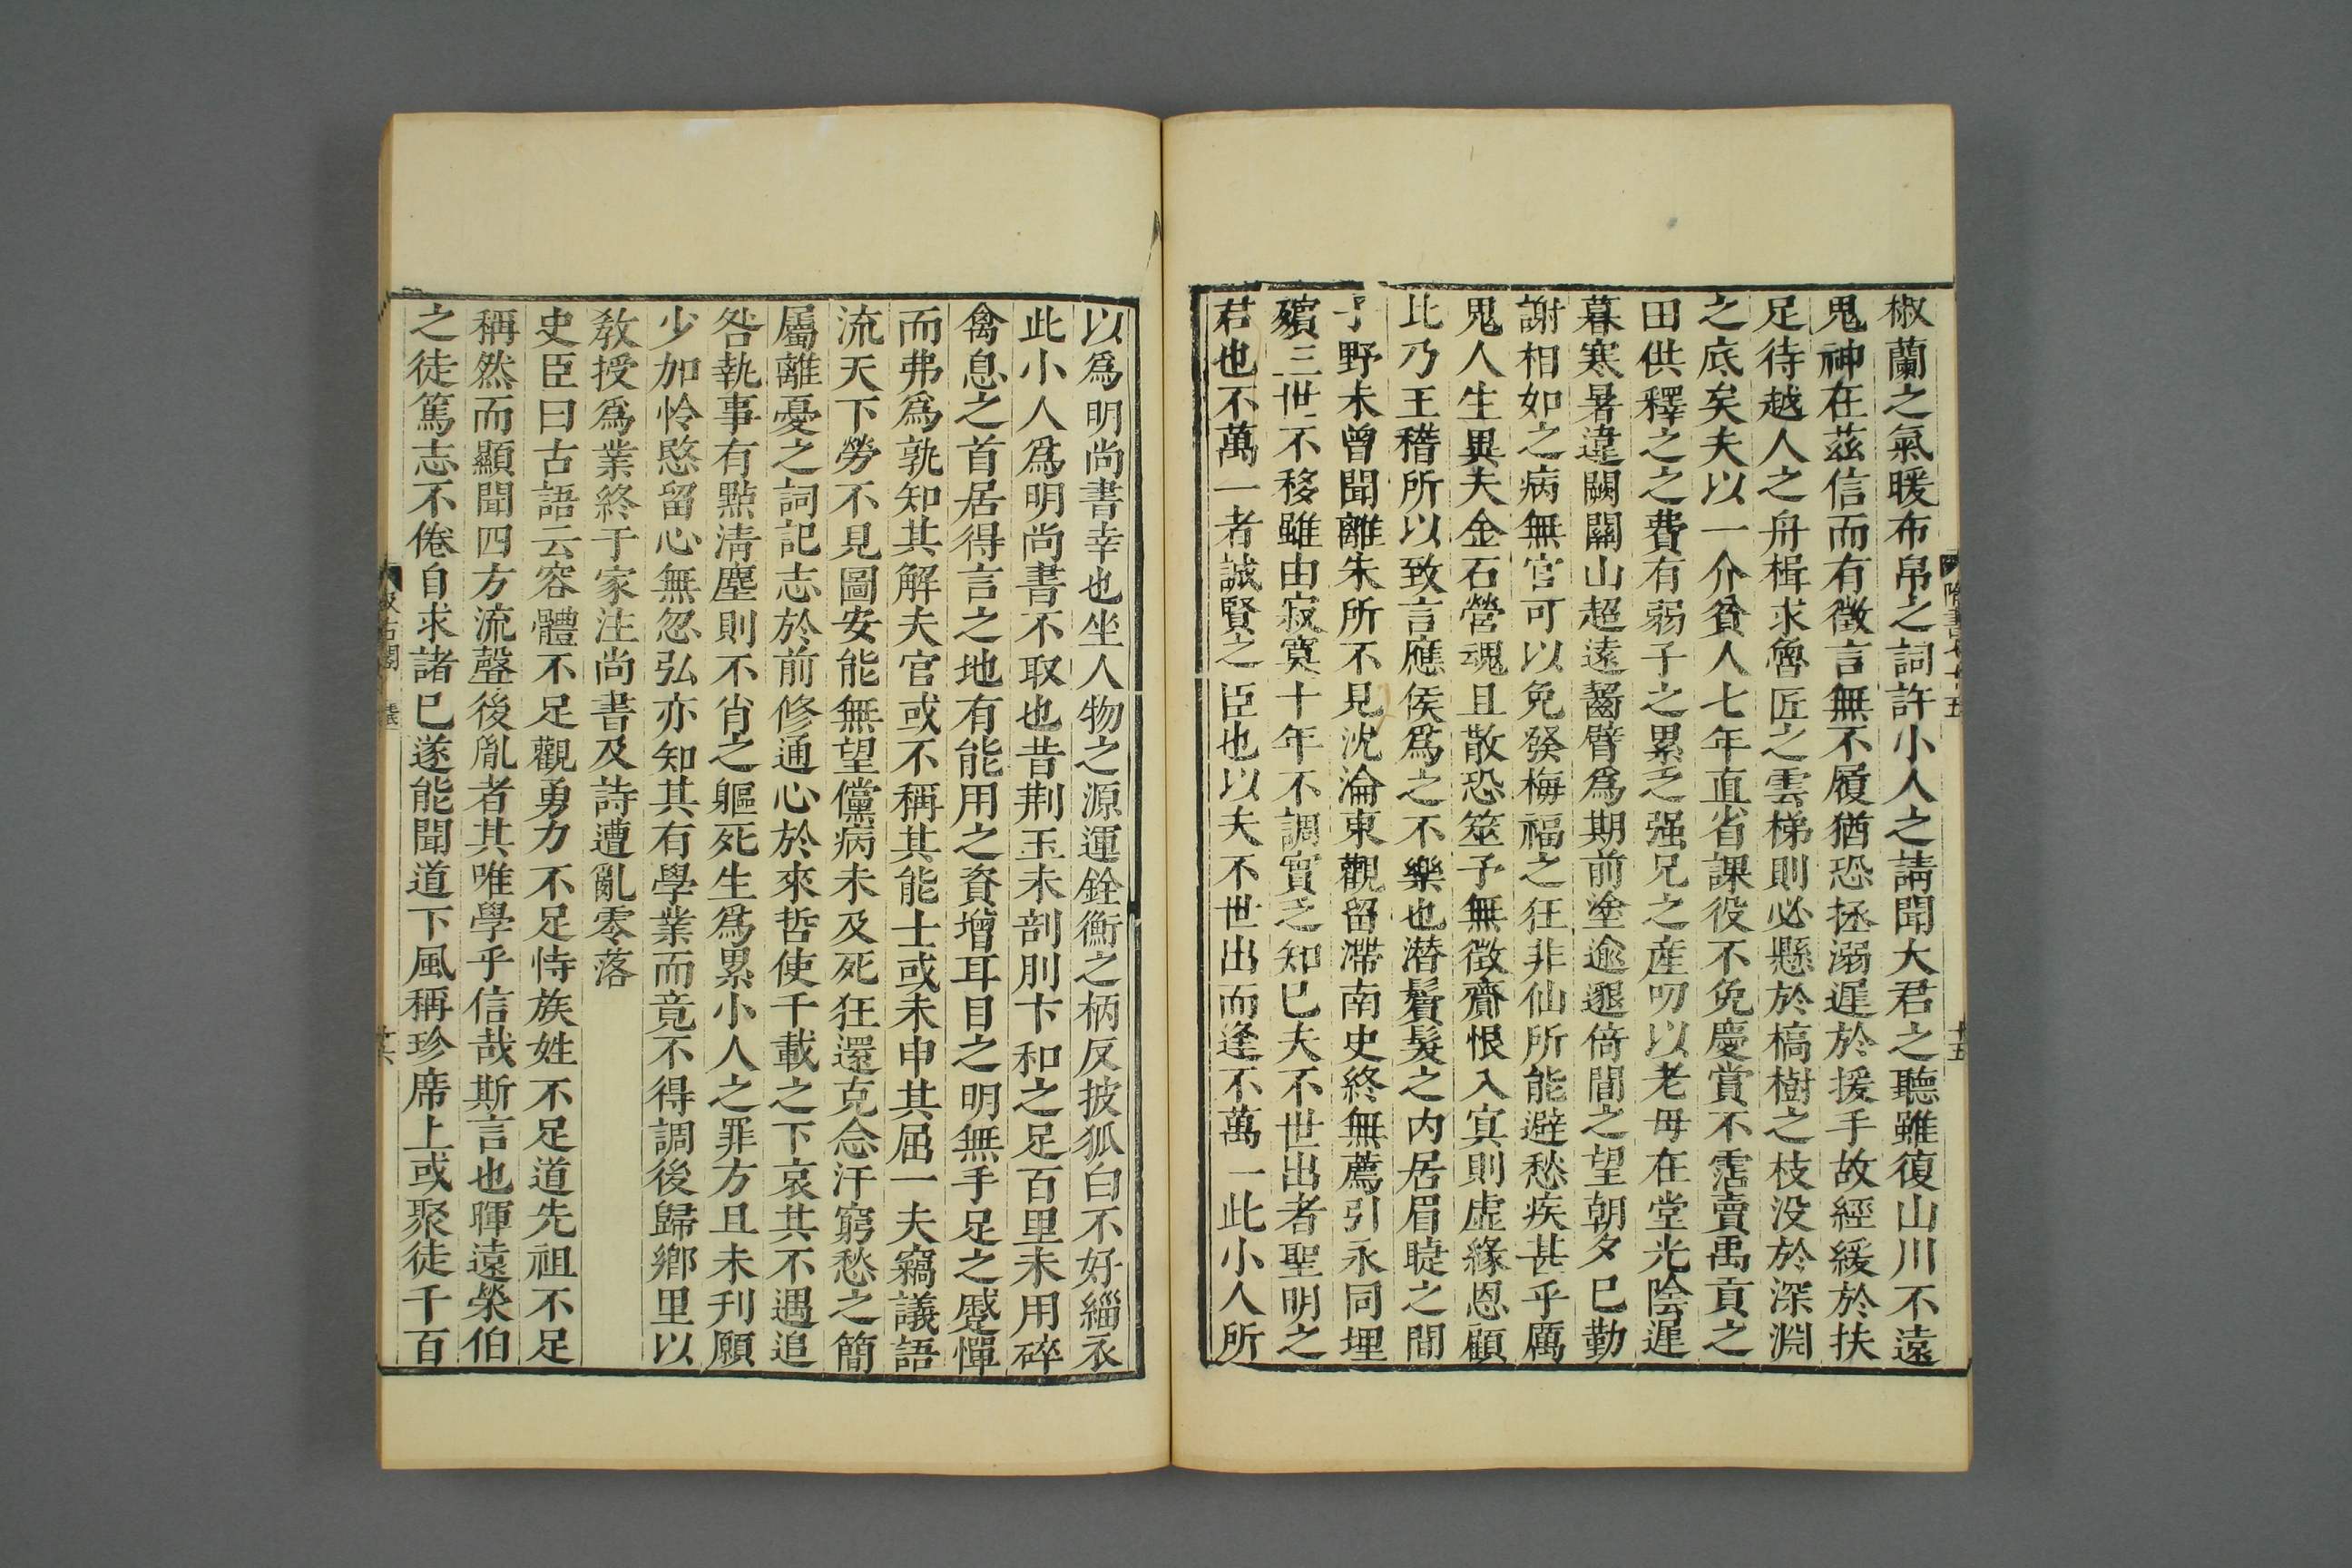 椒蘭之氣暖布帛之詞許小人之請聞大君之聽雖復山川不遠
鬼神在茲信而有徵言無不履猶恐拯溺遲於援手故經緩於扶
足待越人之舟楫求魯匠之雲梯則必懸於槁樹之枝没於深淵
之底矣夫以一介貧人七年直省課役不免慶賞不霑賣禹貢之
田供釋之之費有弱子之累乏强兄之産叨以老母在堂光陰遲
暮寒暑違闕關山超遠齧臂為期前塗逾邈倚閭之望朝夕已勤
謝相如之病無官可以免發梅福之狂非仙所能避愁疾甚乎厲
鬼人生異夫金石營魂且散恐筮予無徴齎恨入㝠則虚緣恩顧
此乃王稽所以致言應侯爲之不樂也潜鬢髮之内居眉睫之間
子野未曾聞離朱所不見沈淪東觀留滯南史終無薦引永同埋
殯三世不移雖由寂寞十年不調實乏知已夫不世出者聖明之
君也不萬一者誠賢之臣也以夫不世出而逢不萬一此小人所
隋書七十五
十五
以爲明尚書幸也坐人物之源運銓衡之柄反披狐白不好緇衣
此小人爲明尚書不取也昔荆玉未剖刖卞和之足百里未用碎
禽息之首居得言之地有能用之資增耳目之明無手足之蹙憚
而弗爲孰知其解夫官或不稱其能士或未申其屈一夫竊議語
流天下勞不見圖安能無望儻病未及死狂還克念汗窮愁之簡
屬離憂之詞記志於前修通心於來哲使千載之下哀其不遇追
咎執事有點淸塵則不肖之軀死生爲累小人之罪方且未刊願
少加怜愍留心無忽弘亦知其有學業而竟不得調後歸鄉里以
教授爲業終于家注尚書及詩遭亂零落
史臣曰古語云容體不足觀勇力不足恃族姓不足道先祖不足
稱然而顯聞四方流聲後胤者其唯學乎信哉斯言也暉遠榮伯
之徒篤志不倦自求諸已遂能聞道下風稱珍席上或聚徒千百
汲古閣
十六